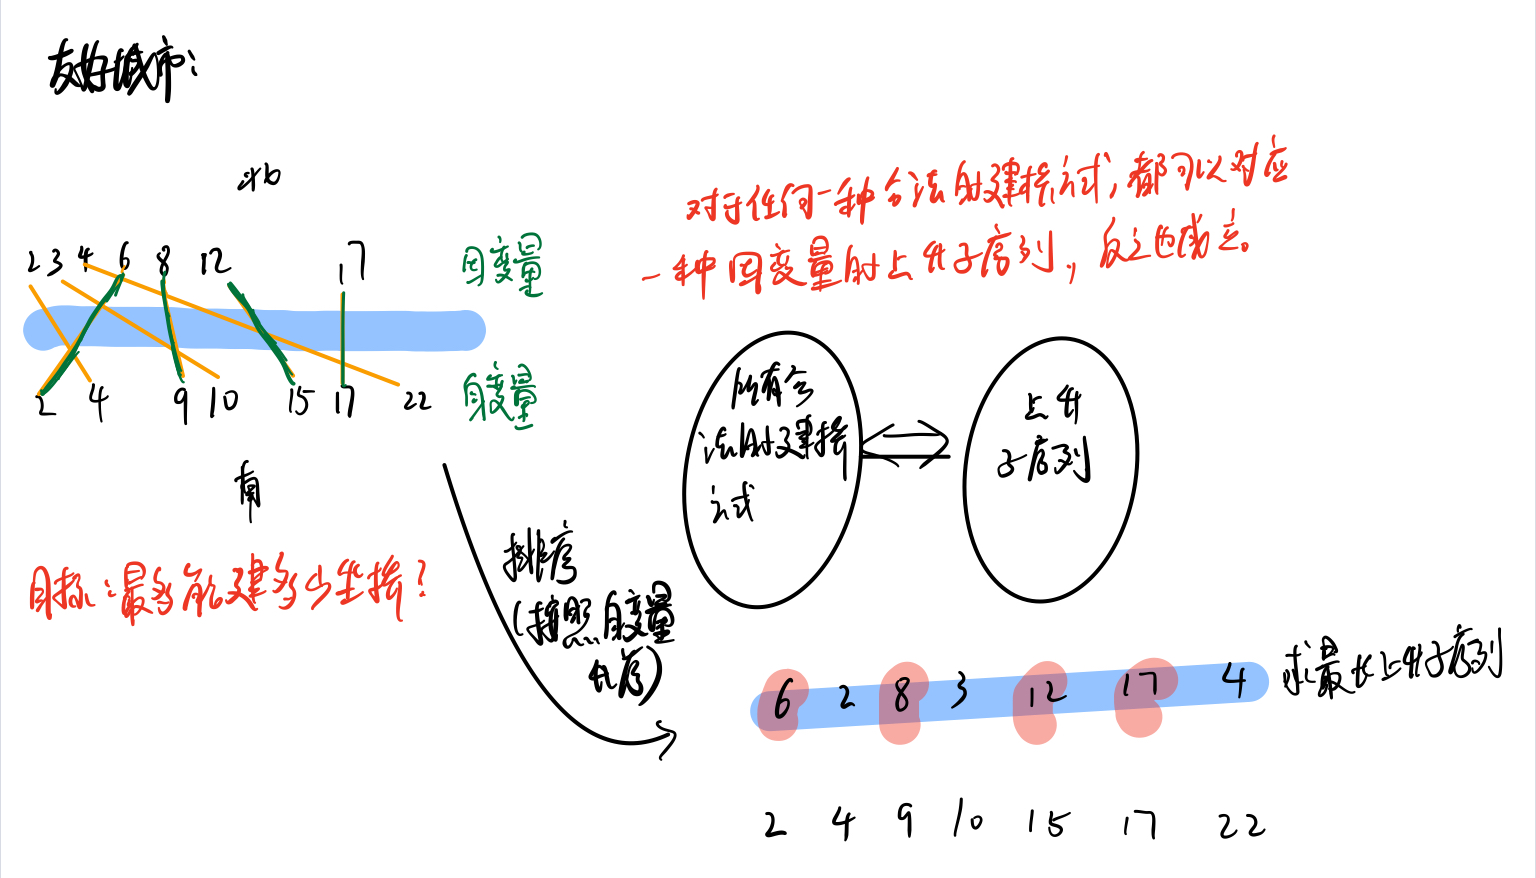 友好城市：
北
2 3 4 6 8 12 17 因变量
2 4 9 10 15 17 22 自变量
南
目标：最多能建多少座桥？
对于任何一种合法的建桥方式，都可以对应
一种因变量的上升子序列，反之也成立。
所有合
法的建桥
方式
上升
子序列
排序
(按照自变量
排序)
6 2 8 3 12 17 4 求最长上升子序列
2 4 9 10 15 17 22